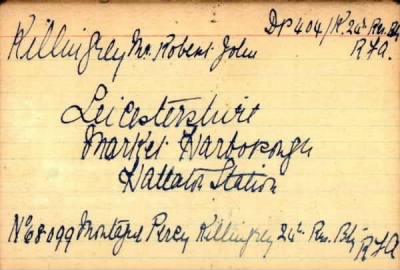 Killingrey Mr. Robert John
DP404/K. 24th Res. By
R.F.A.
Leicestershire
Market Harborough
Hallaton Station
No 68099 Montague Percy Killingrey 24th Res. Bty
RFA